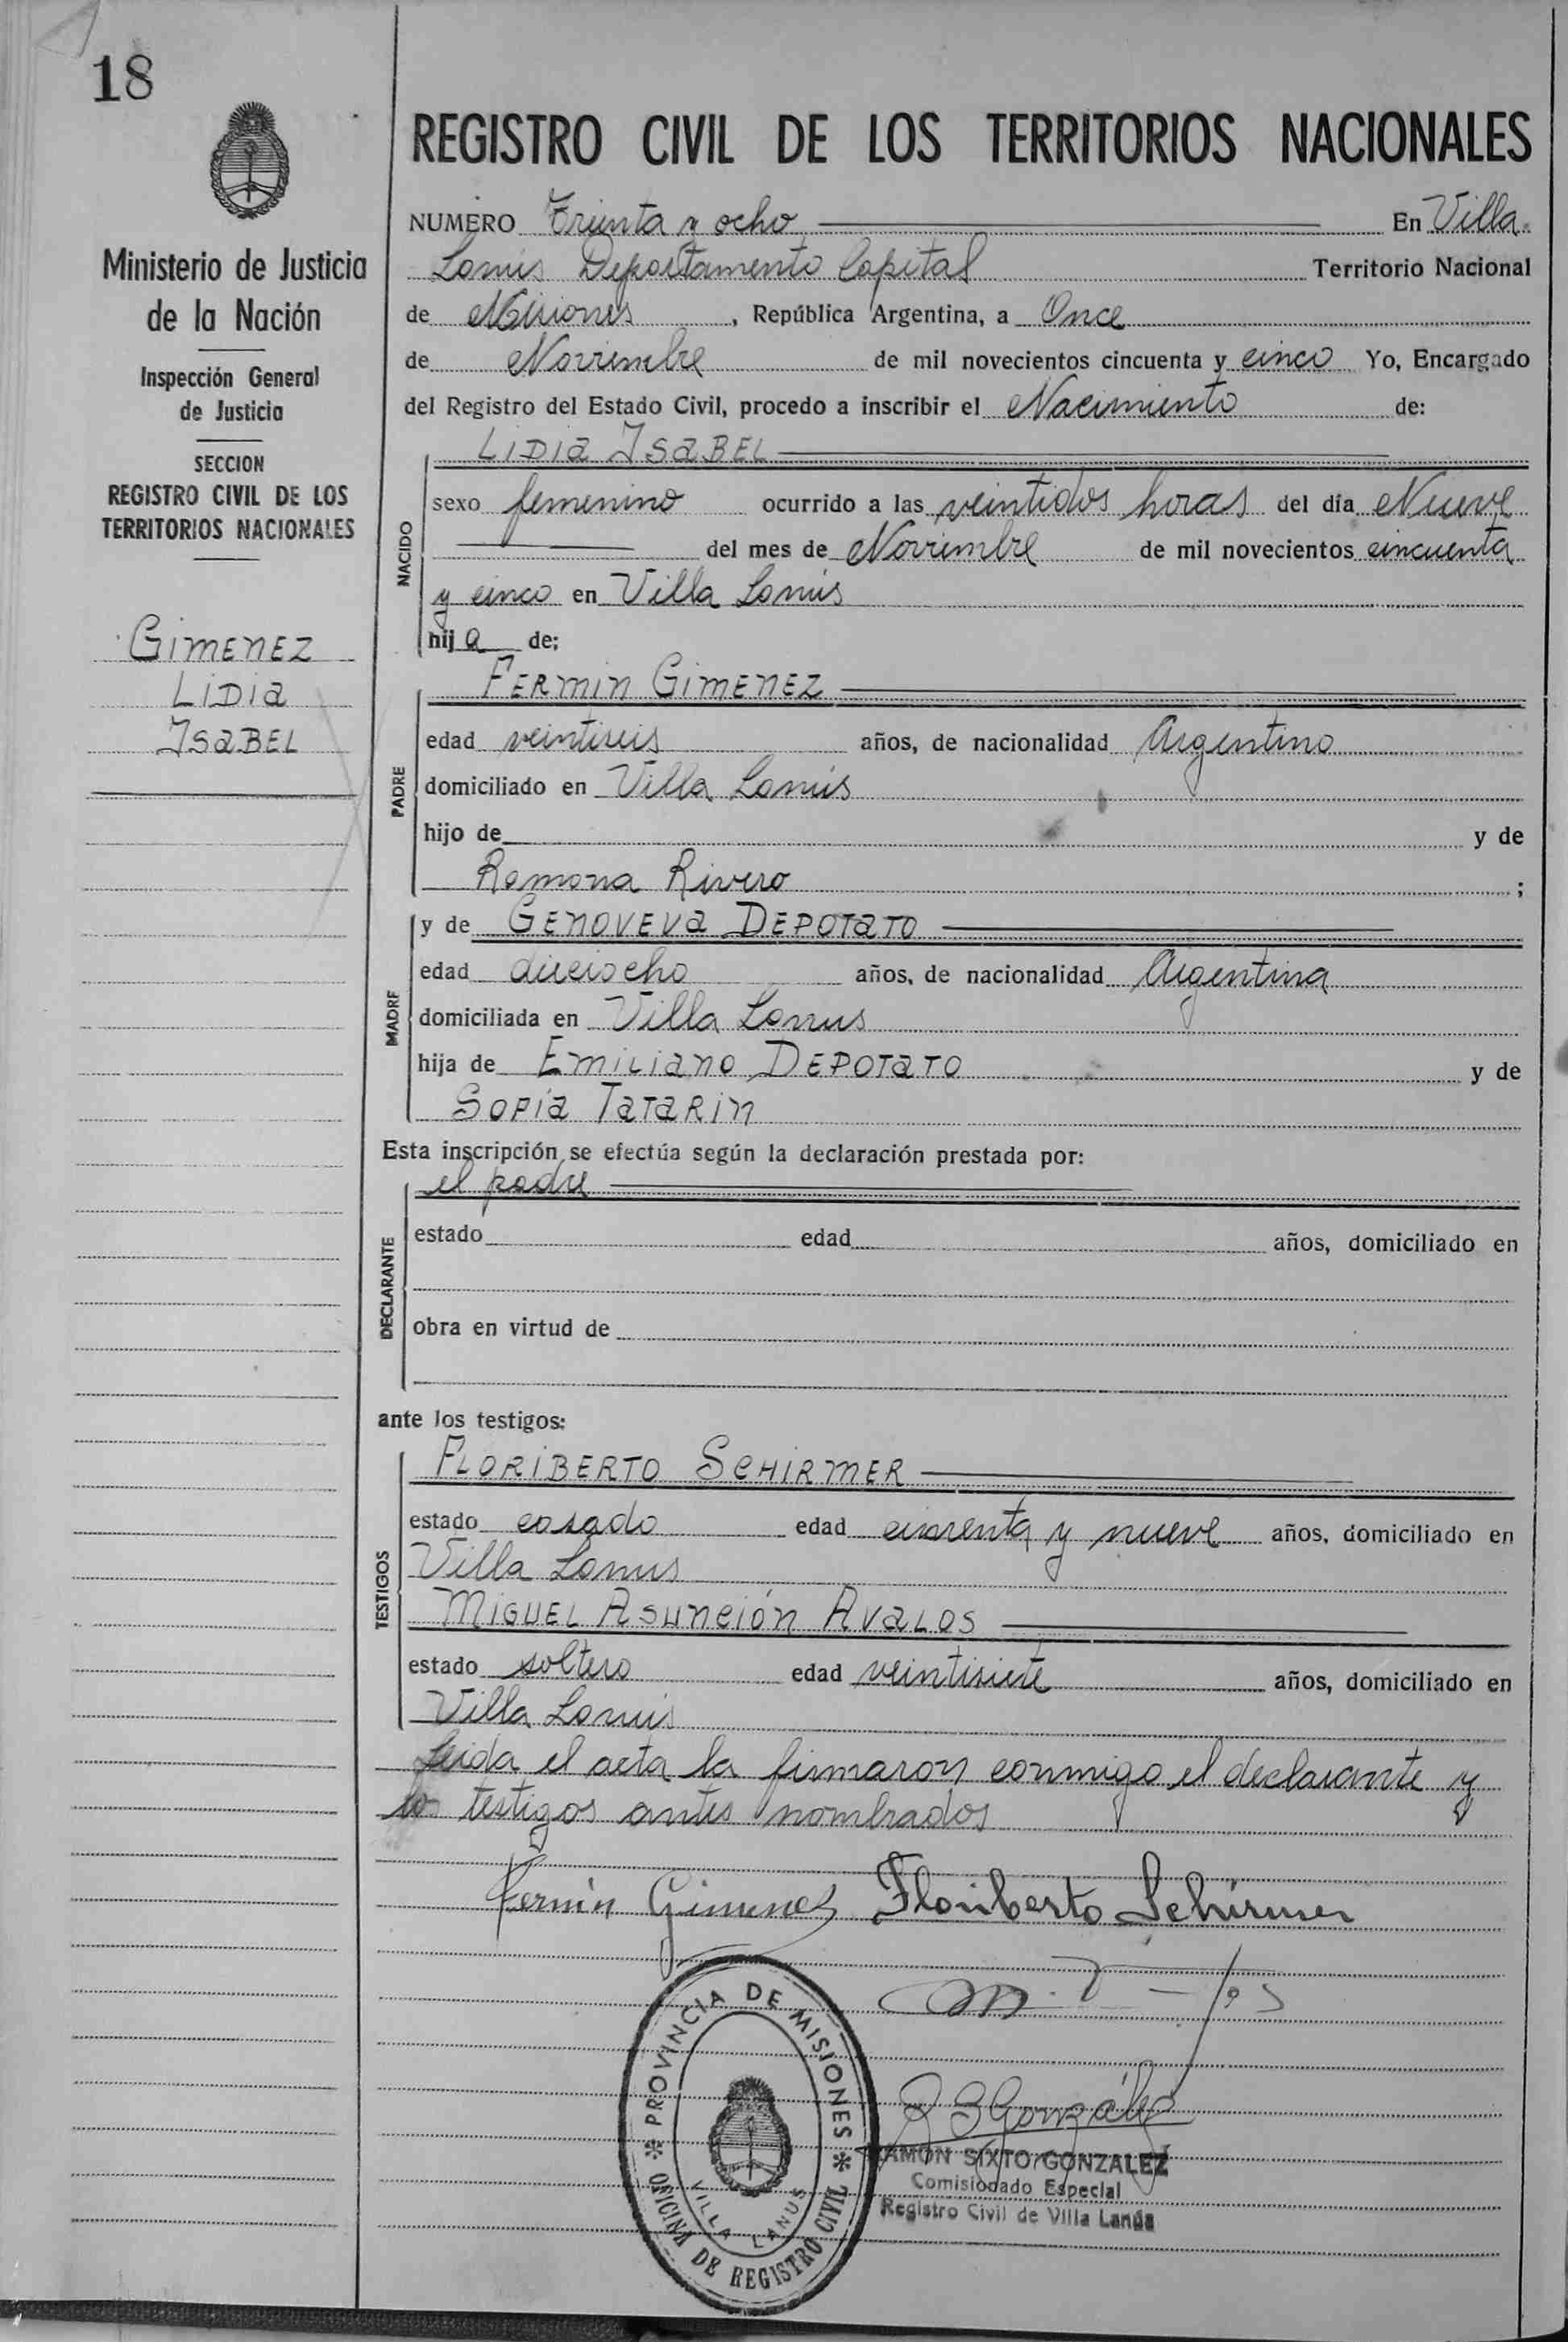 18
Ministerio de Justicia
de la Nación
Inspección General
de Justicia
SECCION
REGISTRO CIVIL DE LOS
TERRITORIOS NACIONALES
GIMENEZ
LIDIA
ISABEL
REGISTRO CIVIL DE LOS TERRITORIOS NACIONALES
NUMERO Treinta y ocho En Villa
Lanús Departamento Capital Territorio Nacional
de Misiones, República Argentina, a Once
de Noviembre de mil novecientos cincuenta y cinco Yo, Encargado
del Registro del Estado Civil, procedo a inscribir el Nacimiento de:
LIDIA ISABEL
NACIDO
sexo femenino ocurrido a las veintidos horas del día Nueve
del mes de Noviembre de mil novecientos cincuenta
y cinco en Villa Lanús
hij a de;
PADRE
FERMIN GIMENEZ
edad veintiseis años, de nacionalidad Argentino
domiciliado en Villa Lanús
hijo de y de
Ramona Rivero ;
MADRE
y de GENOVEVA DEPOTATO
edad dieciocho años, de nacionalidad Argentina
domiciliada en Villa Lanus
hija de EMILIANO DEPOTATO y de
SOFIA TATARIN
Esta inscripción se efectúa según la declaración prestada por:
DECLARANTE
el padre
estado edad años, domiciliado en
obra en virtud de
ante los testigos:
TESTIGOS
FLORIBERTO SCHIRMER
estado casado edad y nueve años, domiciliado en
Villa Lanus
MIGUEL ASUNCIÓN AVALOS
estado soltero edad veintisiete años, domiciliado en
Villa Lanus
Leida el acta la firmaron conmigo el declarante y
los testigos antes nombrados
Fermín Gimenez Floriberto Schirmer
PROVINCIA DE MISIONES
OFICINA DE REGISTRO CIVIL
VILLA LANUS
R S González
RAMON SIXTO GONZALEZ
Comisionado Especial
Registro Civil de Villa Lanús